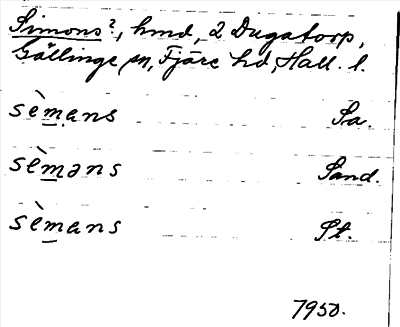 Simons?, hmd, 2 Dugatorp,
Gällinge sn, Fjäre hd, Hall. l.
sèmans Sa.
sèməns Sand.
sèmans St.
7950.